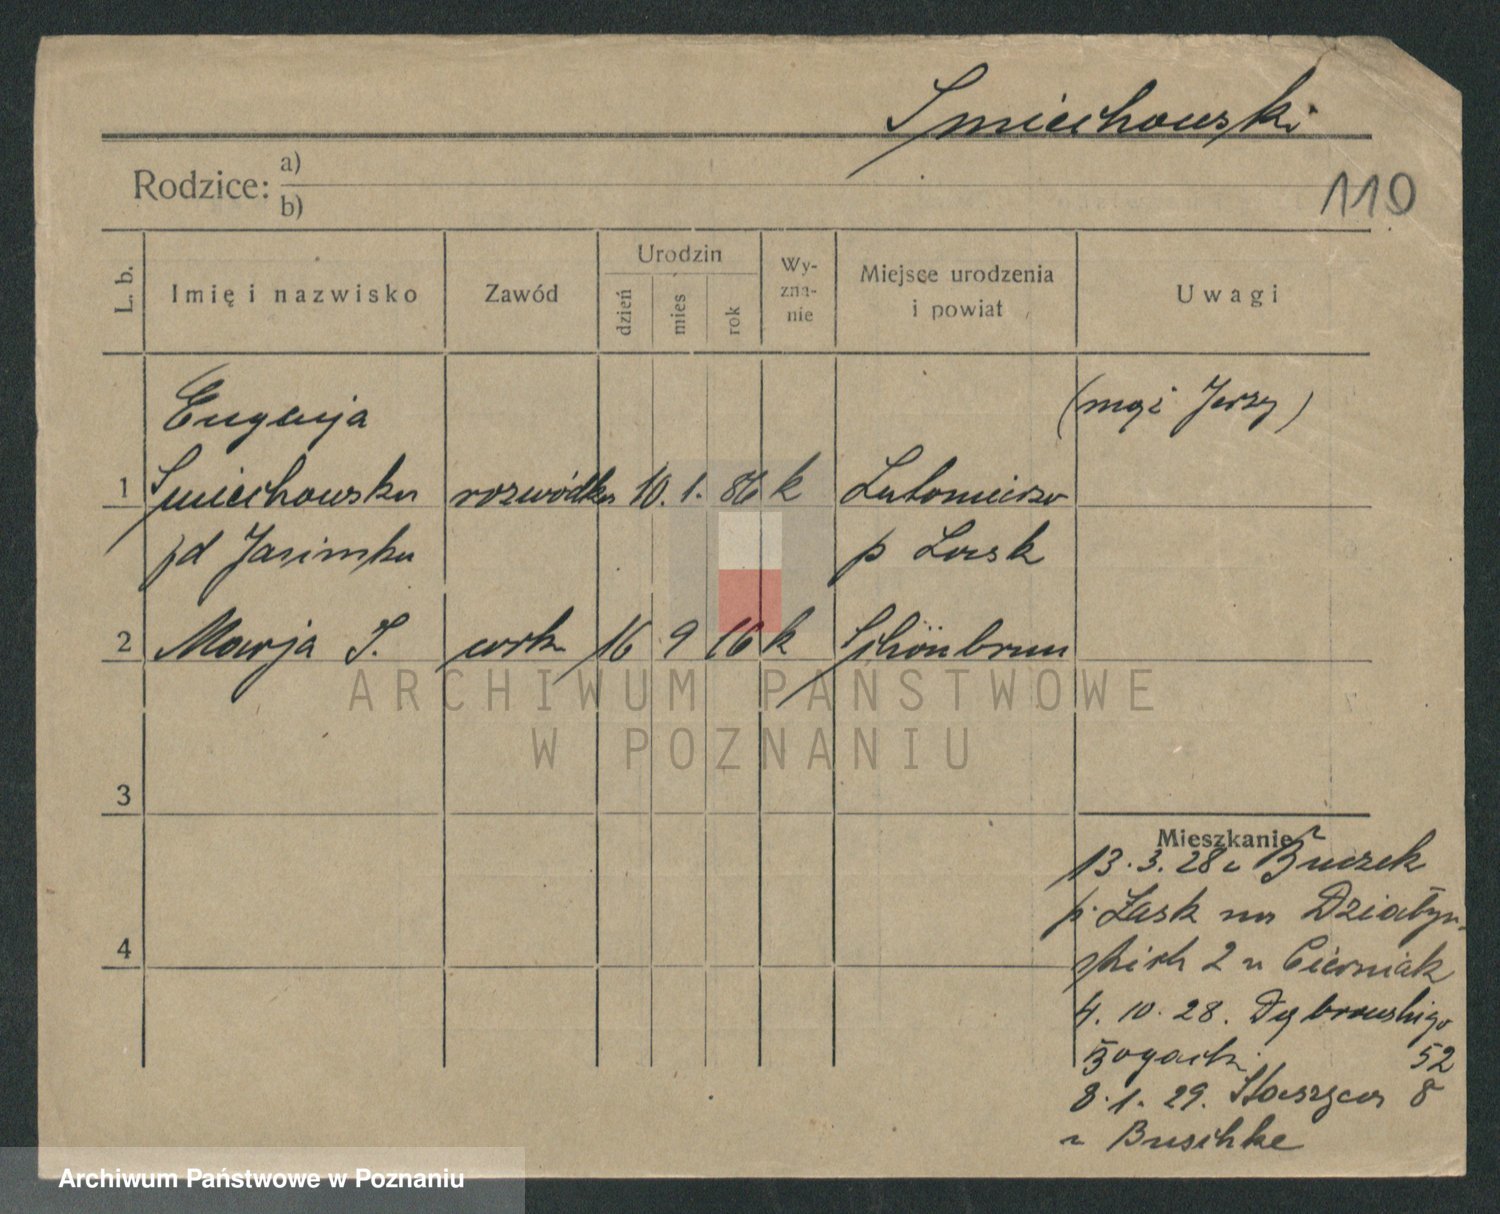 Smiechowski
110
Rodzice: a)
b)
L. b.
Imię i nazwisko
Zawód
Urodzin
dzień
mies
rok
Wy-
zna-
nie
Miejsce urodzenia
i powiat
Uwagi
Eugenja
(mąż Jerzy)
1 Smiechowska rozwódka 10. 1. 86 k Lutomierso
p Lask
2 Marja S. 16 9 16 k Schönbrun
ARCHIWUM PAŃSTWOWE
W POZNANIU
3
Mieszkanie
13. 3. 28 z Buczek
p. Łask na Działyń
4
skich 2 u Cierniak
4. 10. 28. Dąbrowskiego
52
8. 1. 29. Staszyca 8
u Buschke
Archiwum Państwowe w Poznaniu